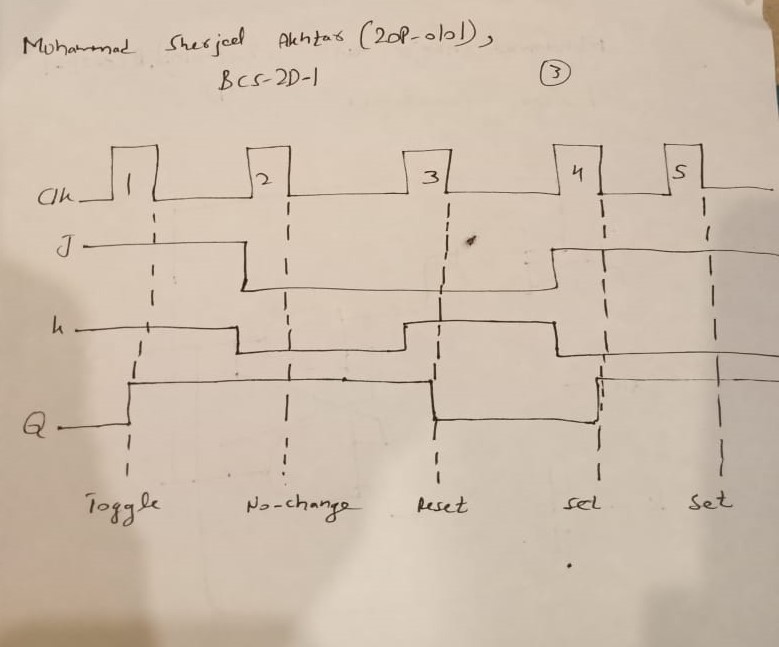 Muhammad Sherjeel Akhtar (20P-0101),
BCS-2D-1
3
Clk 1 2 3 4 5
J
k
Q
Toggle No-change Reset Set Set